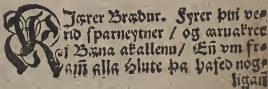 KJærer Brædur. Fyrer þui ve⸗
rid sparneytner / og æruakrer
i Bæna akallenu / Eñ vm fr
am̃ alla hlute þa hafed nog⸗
ligañ